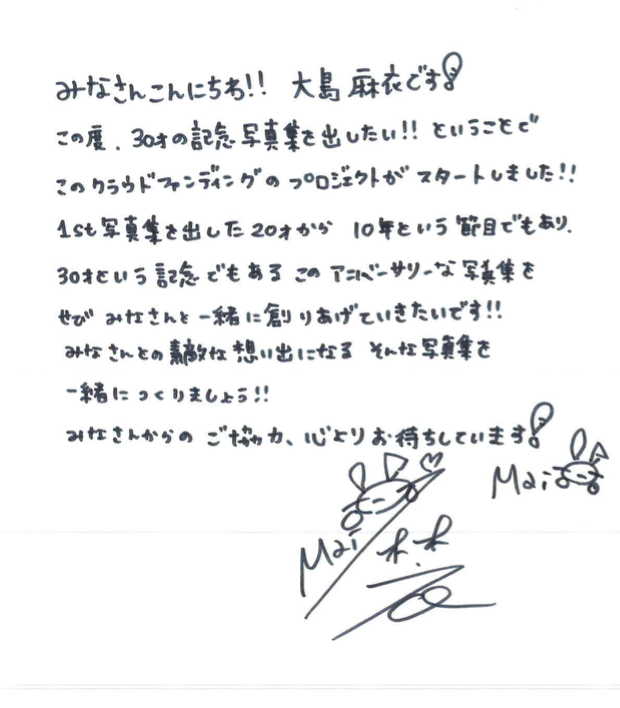 みなさんこんにちわ!! 大島 麻衣です!
この度、30才の記念写真集を出したい!! ということで
このクラウドファンディングのプロジェクトがスタートしました!!
1st写真集を出した20才から 10年という節目でもあり、
30才という記念でもあるこのアニバーサリーな写真集を
ぜひ みなさんと一緒に創りあげていきたいです!!
みなさんとの素敵な想い出になる そんな写真集を
一緒につくりましょう!!
みなさんからの ご協力、心よりお待ちしています!
Mai
Mai